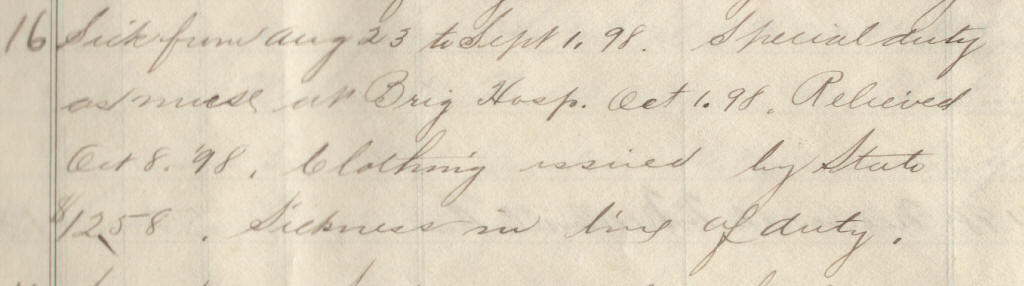 16 Sick from Aug 23 to Sept 1. 98. Special duty
as nurse at Brig Hosp. Oct 1. 98. Relieved
Oct 8. '98. Clothing issued by State
$12.58. Sickness in line of duty.